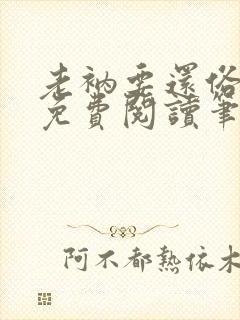 老衲要還俗
免費閱讀筆
阿不都熱依木